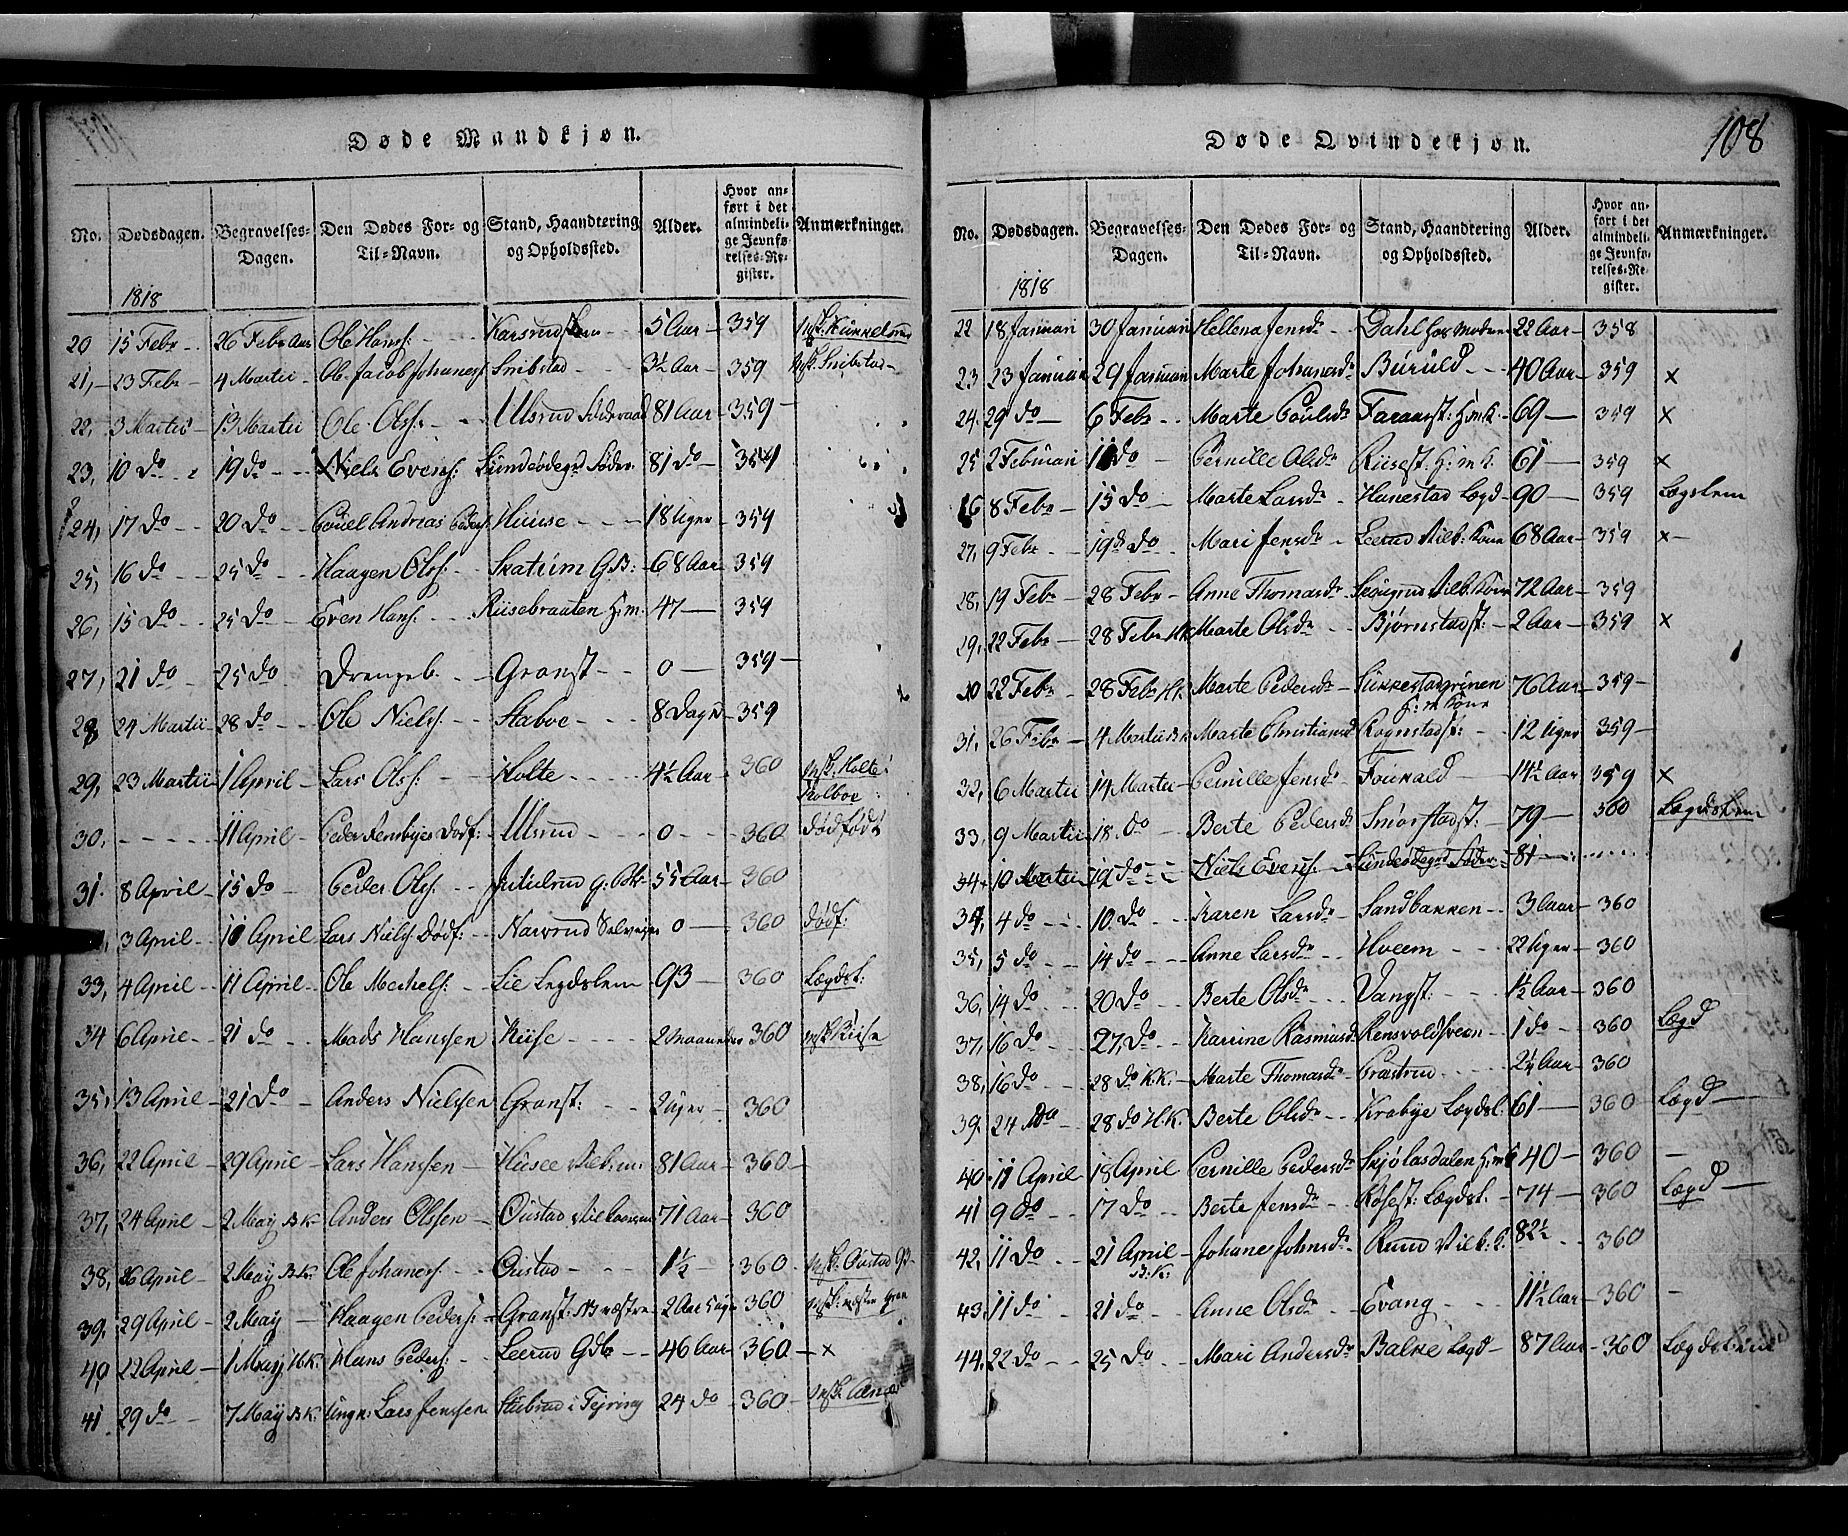 Døde Mandkjøn.
No. Dødsdagen. Begravelses-Dagen. Den Dødes For- og Til-Navn. Stand, Haandtering og Opholdssted. Alder. Hvor anført i det almindelige Jevnførelses-Register. Anmærkninger.
1818
20 15 Febr 26 Febr Ole Hans: 5 Aar 359
21, 23 Febr 4 Martii Ole Jacob Johanes: Snibstad 3½ Aar 359 Snibstad
22, 3 Martii 13 Martii Ole Ols: Ulsrud 81 Aar 359
23, 10 Do 19 Do Niels Evens: 81 Do 359
24, 17 Do 20 Do Povel Andreas Peders: Huuse 18 Uger 359
25, 16 Do 25 Do Haagen Ols: Skatrum G.B: 68 Aar 359
26, 15 Do 25 Do Even Hans: Riisebraaten H:m. 47 359
27, 21 Do 25 Do Drengeb. Granst 0 359
28 24 Martii 28 Do Ole Niels: Staboe 8 Dage 359
29, 23 Martii 1 April Lars Ols: Holte 4½ Aar 360 Holte
Kolboe
30, 11 April Peder Dødf: Ulsrud 0 360 dødfødt
31. 8 April 15 Do Peder Ols: 55 Aar 360
3 April 10 April Lars Niels Dødf: 0 360 dødf:
33, 4 April 11 April Ole Mechels: Lie Legdslem 93 360 Lægdsl:
34 6 April 21 Do Mads Hanssen Riise 2 Maaneder 360 Riise
35, 13 April 21 Do Anders Nielssen Granst: 2 Uger 360
36, 22 April 29 April Lars Hanssen 81 Aar 360
37, 24 April 2 May B.K. Anders Olssen Oustad 71 Aar 360
38, 26 April 2 May B.K. Ole Johanes: Oustad 1½ 360 Oustad
39, 29 April 2 May Haagen Peders: Granst: 2 Aar 360
40, 22 April 1 May H.K. Hans Peders: Leerud Gdb 46 Aar 360 ×
41 29 do 7 May B.K. Ungk: Lars Jenssen 24 do 360
Døde Qvindekjøn.
108
No. Dødsdagen. Begravelses-Dagen. Den Dødes For- og Til-Navn. Stand, Haandtering og Opholdssted. Alder. Hvor anført i det almindelige Jevnførelses-Register. Anmærkninger.
1818
22 18 Januari 30 Januari Hellena Jensdr Dahl 22 Aar 358
23 23 Januari 29 Januari Marte Johansdr Buruld 40 Aar 359 ×
24. 29 do 6 Febr Marte Poulsdr 69 359 ×
25 2 Februari 11 Do Pernille Olsdr Riisest: H:m.k: 61 359 ×
8 Febr 15 Do Marte Larsdr Hanestad Lægd 90 359 Lægslem
27, 9 Febr 19 Do Mari Jensdr Leerud Vilk: Kone 68 Aar 359 ×
28, 19 Febr 28 Febr Anne Thomasdr 72 Aar 359
29, 22 Febr 28 Febr H.K Marte Olsdr Bjørnstadst: 2 Aar 359 ×
30 22 Febr 28 Febr H.K. Marte Pedersdr 76 Aar 359
H:m. Kone
31, 26 Febr 4 Martii Marte Christiansd Rognstadst: 12 Uger 359
32, 6 Martii 14 Martii Pernille Jensdr 14½ Aar 359 ×
33, 9 Martii 18. Do Berte Pedersdr Smørstadst: 79 360 Lægdslem
34, 10 Martii 19 Do Niels Evens: 81
34, 4 do 10. Do Karen Larsdr Sandbakken 3 Aar 360
35, 5 do 14 do Anne Larsdr Hveem 22 Uger 360
36, 14 do 20 Do Berte Olsdr Vangst: 1½ Aar 360
37, 16 Do 27, Do Karrine Rasmusdr 1 do 360 Lægd
38, 16 Do 28 do K.K. Marte Thomasdr 2½ Aar 360
39. 24 Do 28 do H.K. Berte Olsdr Krabye Lægdsl: 61 360 Lægd
40. 11 April 18 April Pernille Pedersdr Skjølasdalen 40 360
41 9 Do 17 Do Berte Jensdr Røfest: Lægdsl. 74 360 Lægd
42, 11 Do 21 April Johane Johnsdr Ruud Vilk: K: 82½ 360
B:K:
43. 11 do 21 do Anne Olsdr Evang 11½ Aar 360
44. 22 do 25 Do Mari Andersdr Balke Lægd 87 Aar 360